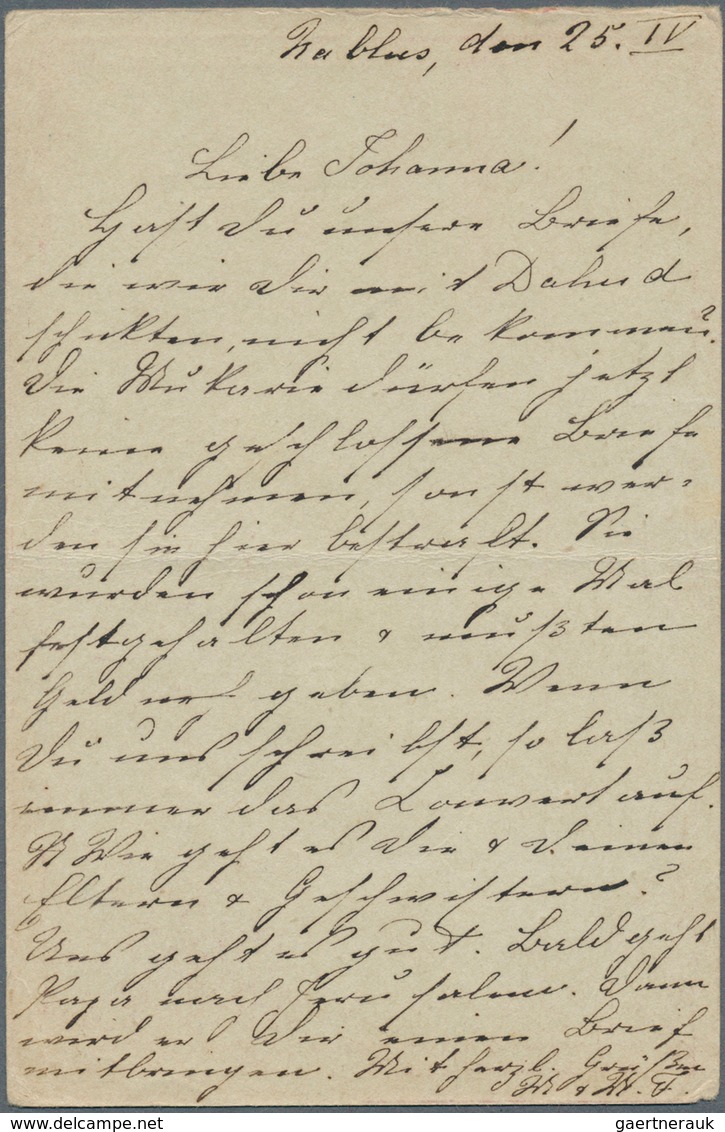 Nablus, den 25. IV
Liebe Johanna!
Hast Du unsere Briefe,
die wir Dir mit Dahud
schikten, nicht bekommen?
Die Mukarie dürfen jetzt
keine geschlossene Briefe
mitnehmen, sonst wer-
den sie hier bestraft. Sie
wurden schon einige Mal
festgehalten & mußten
Geld geben. Wenn
Du uns schreibst, so laß
immer das Couvert auf.
Wie geht es Dir & Deinen
Eltern & Geschwistern?
Uns geht es gut. Bald geht
Papa nach Jerusalem. Dann
wird er Dir einen Brief
mitbringen. Mit herzl. Grüßen
M & M. F.
gaertnerauk